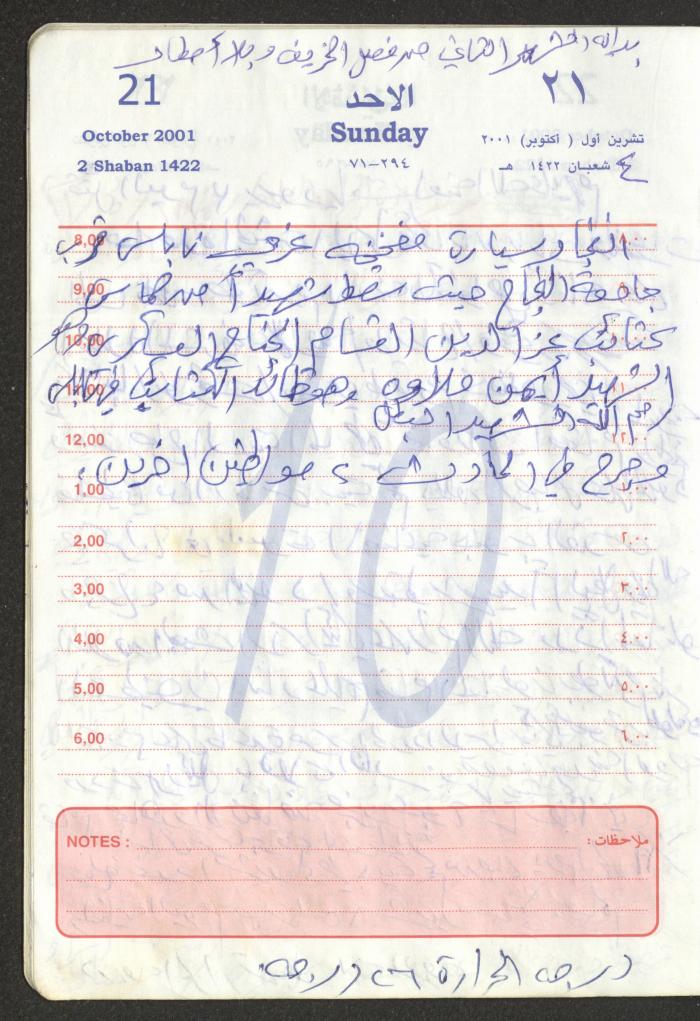 بداية الشهر الثاني من فصل الخريف وبلا أمطار
21 الاحد ٢١
October 2001 Sunday تشرين أول ( أكتوبر) ٢٠٠١
2 Shaban 1422 ٢٩٤-٧١ ٤ شعبان ١٤٢٢ هـ
8,00 انفجار سيارة مفخخة غرب نابلس قرب ٨,٠٠
9,00 جامعة النجاح حيث سقط شهيدا من حماس
10,00 كتائب عز الدين القسام الجناح العسكري وهو
الشهيد أيمن حلاوه وهو قائد الكتائب في نابلس
رحم الله الشهيد البطل
12,00 ١٢,٠٠
1,00 وجرح في الحادث ٢ مواطنين اخرين .
2,00 ٢,٠٠
3,00 ٣,٠٠
4,00 ٤,٠٠
5,00 ٥,٠٠
6,00 ٦,٠٠
10
NOTES : ملاحظات :
درجه الحرارة ٢٦ درجه .